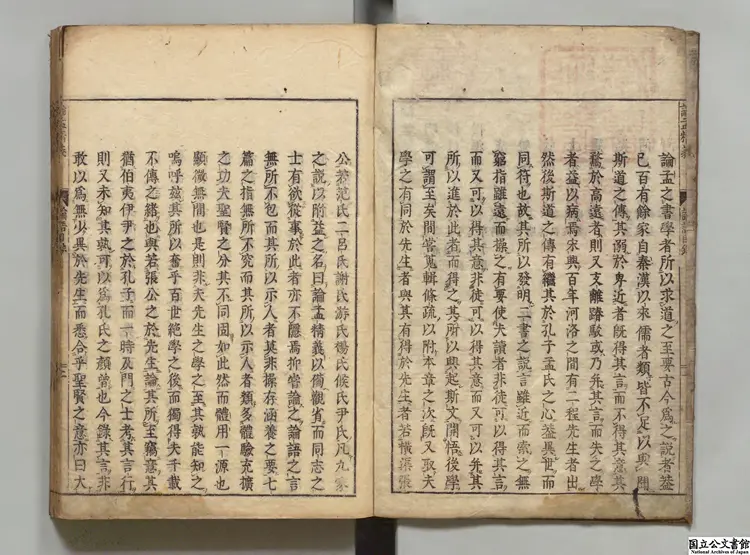 論孟之書學者所以求道之至要古今爲之說者蓋
已百有餘家自秦漢以來儒者類皆不足以與聞
斯道之傳其溺於卑近者旣得其言而不得其意其
騖於高遠者則又支離踳駁或乃幷其言而失之學
者益以病焉宋興百年河洛之間有二程先生者出
然後斯道之傳有繼其於孔子孟氏之心蓋異世而
同符也故其所以發明二書之說言雖近而索之無
窮指雖遠而操之有要使夫讀者非徒可以得其言
而又可以得其意非徒可以得其意而又可以幷其
所以進於此者而得之其所以興起斯文開悟後學
可謂至矣間嘗蒐輯條疏以附本章之次旣又取夫
學之有同於先生者與其有得於先生者若橫渠張
公若范氏二呂氏謝氏游氏楊氏侯氏尹氏凡九家
之說以附益之名曰論孟精義以備觀省而同志之
士有欲從事於此者亦不隱焉抑嘗論之論語之言
無所不包而其所以示人者莫非操存涵養之要七
篇之指無所不究而其所以示人者類多體驗充擴
之功夫聖賢之分其不同固如此然而體用一源也
顯微無間也是則非夫先生之學之至其孰能知之
嗚呼茲其所以奮乎百世絕學之後而獨得夫千載
不傳之緒也與若張公之於先生論其所至竊意其
猶伯夷伊尹之於孔子而一時及門之士考其言行
則又未知其孰可以爲孔氏之顏曾也今錄其言非
敢以爲無少異於先生而悉合乎聖賢之意亦曰大
国立公文書館
National Archives of Japan